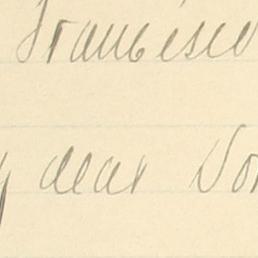 Francisco
y dear Son